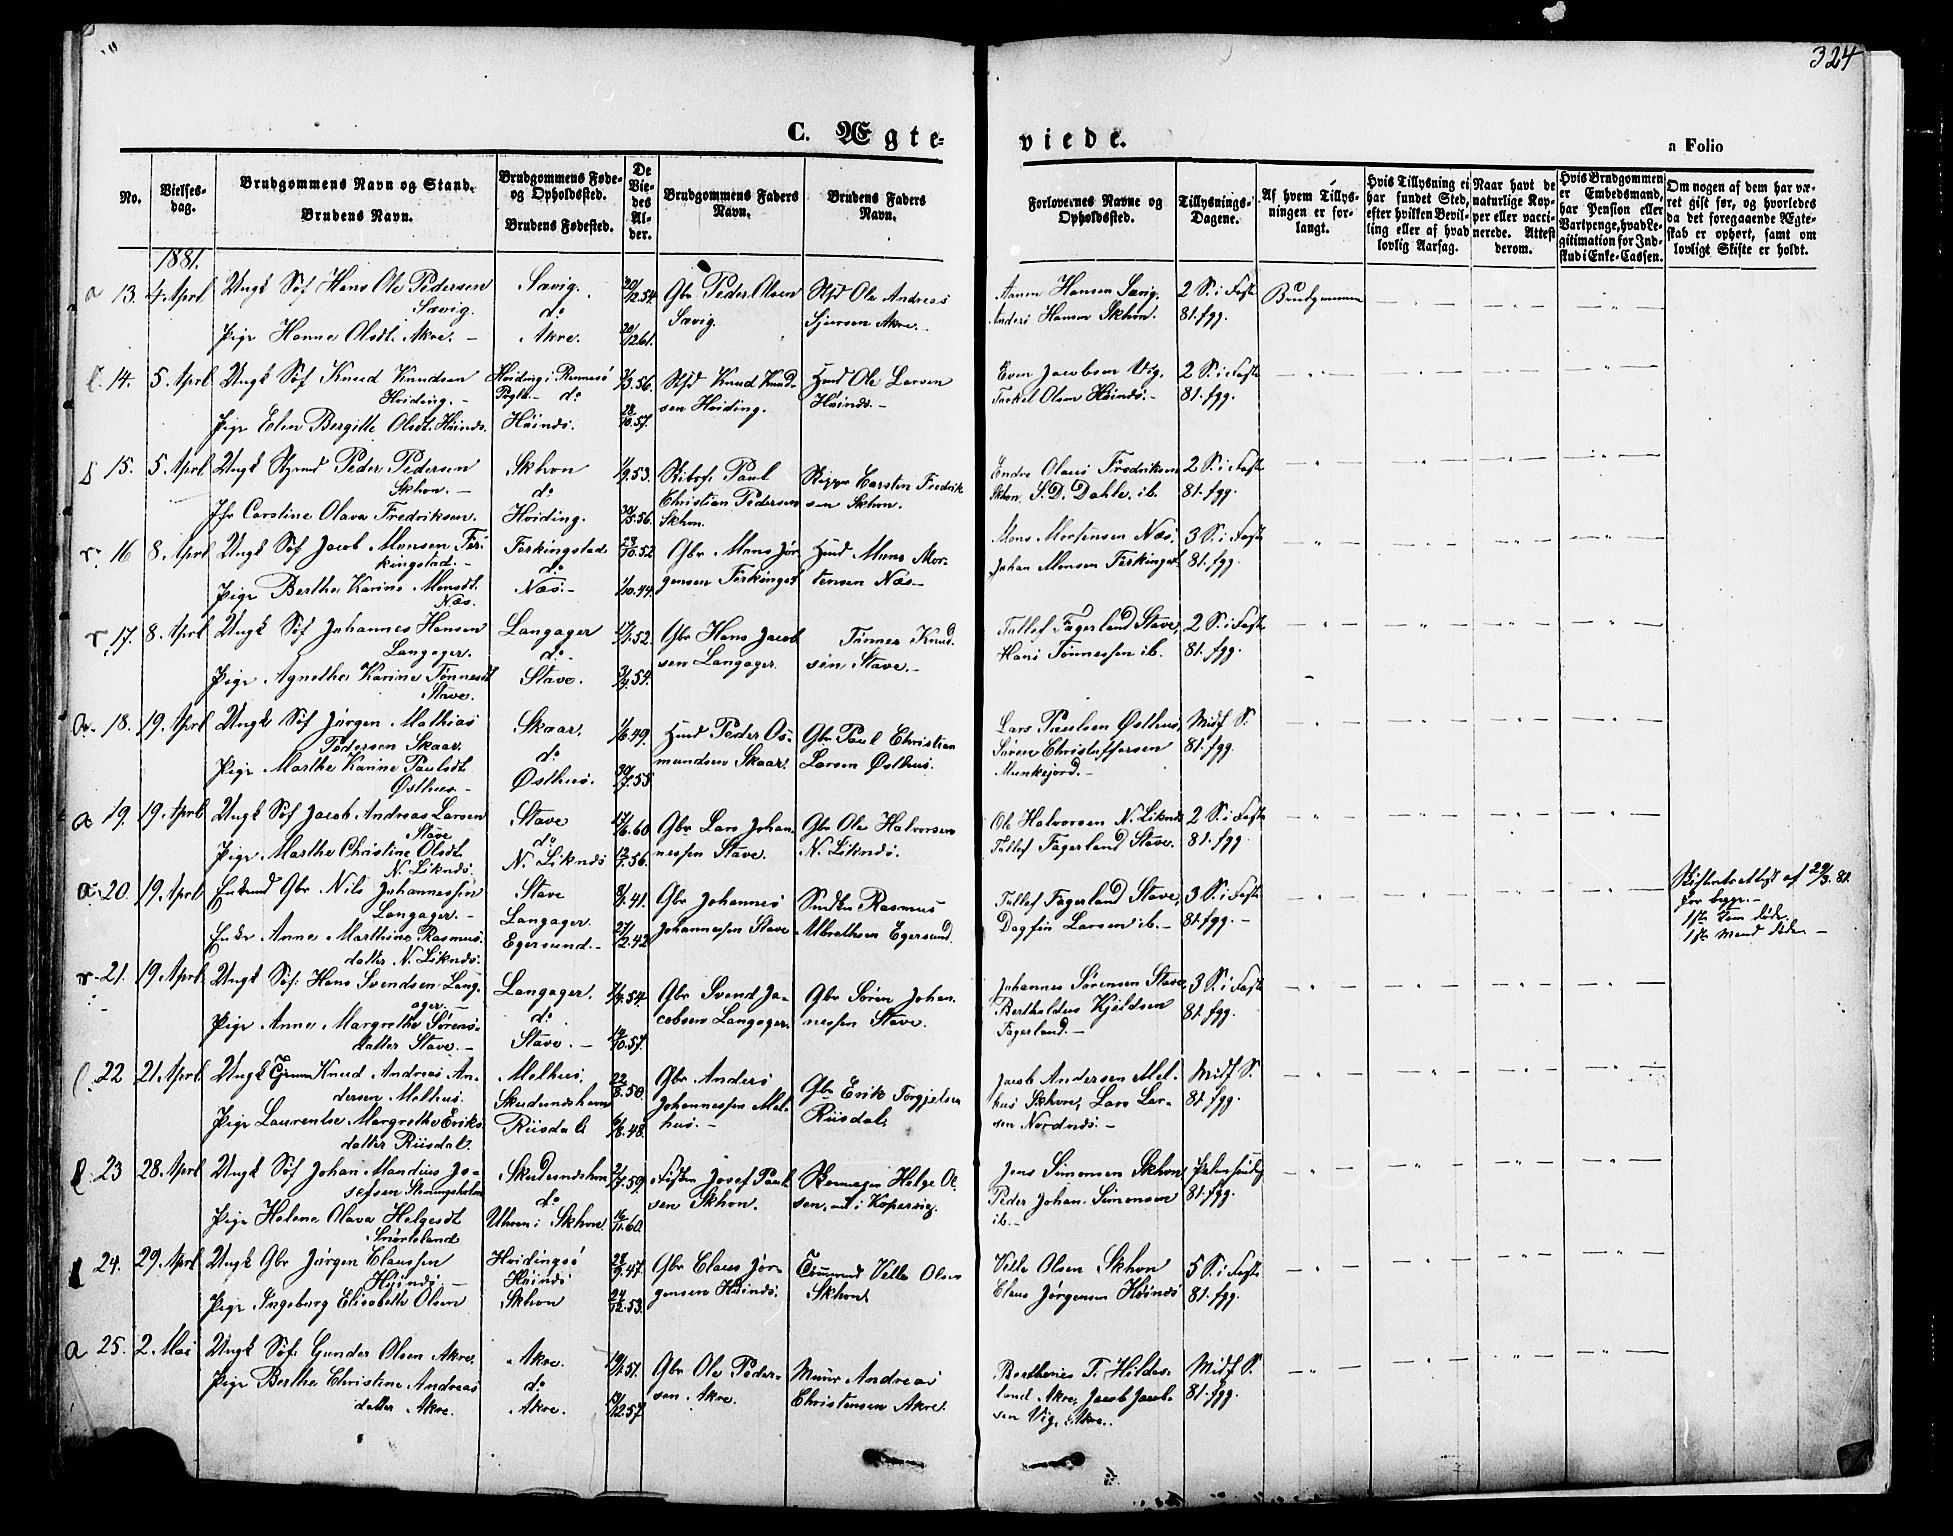 324
C. Ægte-
viede.
a Folio
No.
Vielses-
dag.
Brudgommens Navn og Stand.
Brudens Navn.
Brudgommens Føde-
og Opholdssted.
Brudens Fødested.
De
Vie-
des
Al-
der.
Brudgommens Faders
Navn.
Brudens Faders
Navn.
Forlovernes Navne og
Opholdssted.
Tillysnings-
Dagene.
Af hvem Tillys-
ningen er for-
langt.
Hvis Tillysning ei
har fundet Sted,
efter hvilken Bevil-
ling eller af hvad
lovlig Aarsag.
Naar havt de
naturlige Kop-
per eller vacci-
nerede. Attest
derom.
Hvis Brudgommen
er Embedsmand,
har Pension eller
Vartpenge, hvad Le-
gitimation for Ind-
skud i Enke-Cassen.
Om nogen af dem har væ-
ret gift før, og hvorledes
da det foregaaende Ægte-
skab er ophørt, samt om
lovligt Skifte er holdt.
1881.
a 13. 4 April Ungk Søf Hans Ole Pedersen
Sævig.
Pige Hanne Olsdt. Akre. —
Sævig.
do
Akre.
20/12.54
20/12.61.
Gbr Peder Olsen
Sævig.
Ole Andreas
Sjursen Akre. —
Hansen Sævig,
Anders Hansen Skhvn.
2 S. i Faste
81. fgg.
Brudgommen
14. 5. April Ungk Søf Knud Knudsen
Hviding. —
Pige Elen Bergitte Olsdt. Høinds.
Hviding i Rennesø
do
Høindø.
28/10.57.
Knud Knud-
sen Hviding.
Hmd Ole Larsen
Høindø. —
Even Jacobsen Vig,
Torkel Olsen Høindø. —
2 S. i Faste
81. fgg.
15. 5. April Ungk Styrmd Peder Pedersen
Skhvn. —
Jfr Carstine Olava Fredriksen.
Skhvn
do
Hviding.
Paul
Christian Pedersen
Skhvn.
Skipper Carsten Fredrik
sen Skhvn.
Endre Olaus Fredriksen
Skhvn, S. D. Dahle, ib.
2 S. i Faste
81. fgg.
r. 16 8. April Ungk Søf Jacob Monsen Fer-
kingstad. —
Pige Berthe Karine Monsdt.
Næs.
Ferkingstad
do
Næs. —
Gbr Mons Jør-
gensen Ferkingst
Hmd Mons Mor-
tensen Næs —
Mons Mortensen Næs,
Johan Monsen Ferkingst
3 S. i Faste
81. fgg.
r. 17. 8. April Ungk Søf Johannes Hansen
Langager.
Pige Agnethe Karine Tønnesdt
Stave.
Langager
do
Stave.
Gbr Hans Jacob
sen Langager.
Tønnes Knud-
sen Stave. —
Tollef Fagerland Stave,
Hans Tønnessen ib.
2 S. i Faste
81. fgg.
a. 18. 19. April Ungk Søf Jørgen Mathias
Pedersen Skaar.
Pige Marthe Karine Paulsdt
Østhus. —
Skaar.
do
Østhus.
1/6.49.
30/7.55
Hmd Peder Os-
mundsen Skaar.
Gbr Paul Christian
Larsen Østhus.
Lars Paulsen Østhus,
Søren Christoffersen
Munkejord. —
Midf S.
81. fgg.
a 19. 19. April Ungk Søf Jacob Andreas Larsen
Stave
Pige Marthe Christine Olsdt.
N. Liknds.
Stave
do
N. Liknds
Gbr Lars Johan-
nessen Stave.
Gbr Ole Halvorsen
N. Liknds.
Ole Halvorsen N. Liknds
Tollef Fagerland Stave.
2 S. i Faste
81. fgg.
a. 20. 19. April Enkmd Gbr Nils Johannessen
Langager. —
Enke Anne Marthine Rasmus-
datter N. Liknds.
Stave
Langager.
Egersund. —
27/2.42
Gbr Johannes
Johannessen Stave
Rasmus
Egersund.
Tollef Fagerland Stave,
Dagfin Larsen ib. —
3 S. i Faste
81. fgg. —
Skifteretsattest af 29/3.81.
for begge. —
1ste Kone døde.
1ste Mand døde —
r. 21. 19. April Ungk Søf. Hans Svendsen Lang-
ager. —
Pige Anne Margrethe Sørens-
datter Stave. —
Langager.
do
Stave. —
Gbr Svend Ja-
cobsen Langager.
Gbr Søren Johan-
nessen Stave.
Johannes Sørensen Stave,
Bertholdus Kjeldsen
Fagerland. —
3 S. i Faste
81. fgg.
22 21. April Ungk Knud Andreas An-
dersen Melhus.
Pige Laurentse Margrethe Eriks-
datter Riisdal.
Melhus.
Skudesneshavn
Riisdal
22/8.50.
Gbr Anders
Johannessen Mel-
hus. —
Gbr Erik Torgjelsen
Riisdal.
Jacob Andersen Mel-
hus Skhvn, Lars Lar-
sen Nordnæs. —
Midf S.
81. fgg.
23 28. April Ungk Søf Johan Mandius Jo-
sefsen
Pige Helene Olava Helgesdt
Skudesneshvn
do
i Skhvn.
16/11.60.
Josef Paul-
sen Skhvn.
Helge Ol-
sen, i Kopervig.
Jens Simonsen Skhvn,
Peder Johan Simonsen
ib. —
Palmsøndg
81. fgg.
24. 29. April Ungk Gbr Jørgen Claussen
Høindø —
Pige Ingeborg Elisabeth Olsen
Hvidingsø
Høindø
Skhvn
28/9.47.
24/12.53.
Gbr Claus Jør-
gensen Høindø.
Velle Olsen
Skhvn.
Velle Olsen Skhvn
Claus Jørgensen Høindø
5 S. i Faste
81. fgg.
a 25. 2. Mai Ungk Søf. Gunder Olsen Akre.
Pige Berthe Christine Andreas
datter Akre.
Akre.
do
Akre.
Gbr Ole Peder-
sen Akre.
Murer Andreas
Christensen Akre.
Berthenes T. Hildes-
land Akre, Jacob Jacob-
sen Vig, Akre.
Midf S.
81. fgg.